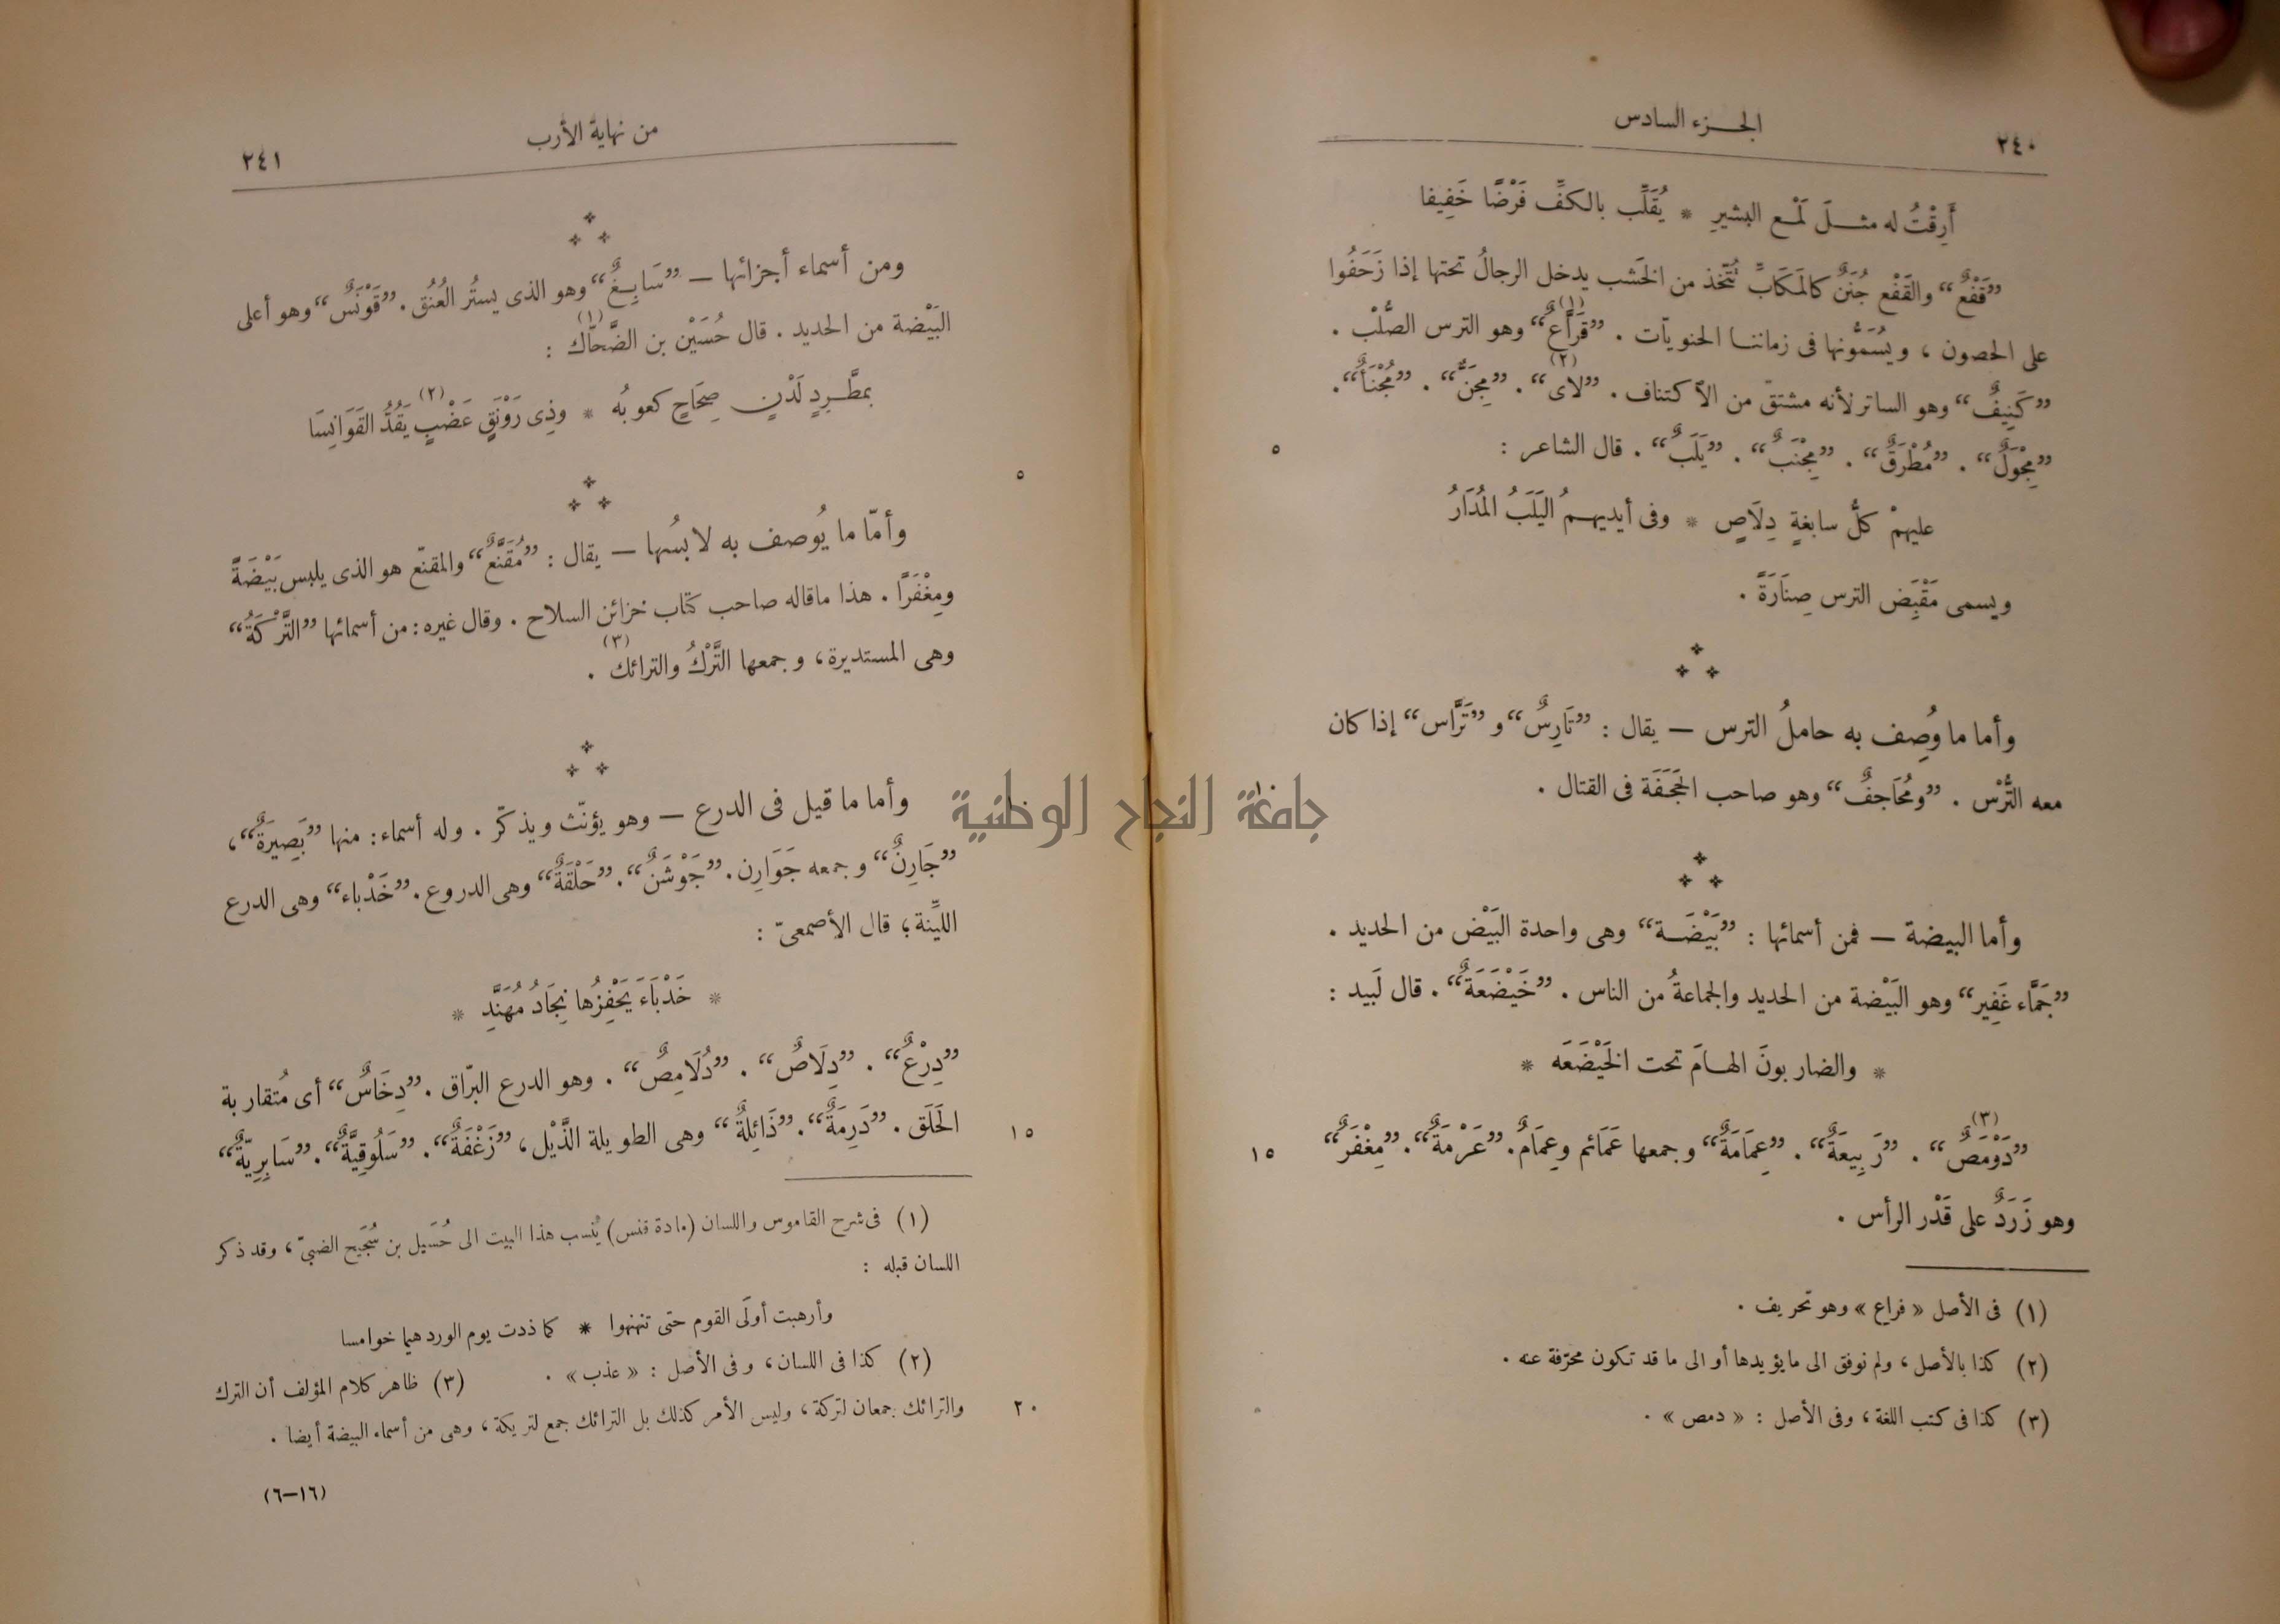 ٢٤٠
الجزء السادس
أَرِقْتُ له مثلَ لَمْع البشيرِ * يُقَلِّب بالكفِّ فَرْضًا خَفِيفا
”قَفْعٌ“ والقَفْع جُنَنٌ كالمَكَابِّ تُتّخذ من الخَشب يدخل الرجالُ تحتها إذا زَحَفُوا
على الحصون ، ويُسَمُّونها فى زماننا الحنويّات . ”قَرَّاعٌ(١)“ وهو الترس الصُّلْب .
”كَنِيفٌ“ وهو الساتر لأنه مشتقّ من الآكتناف . ”لاى(٢)“ . ”مِجَنٌّ“ . ”مُجْنَأٌ“ .
”مِجْوَلٌ“ . ”مُطْرَقٌ“ . ”مِجْنَبٌ“ . ”يَلَبٌ“ . قال الشاعر : ٥
عليهمْ كلُّ سابغةٍ دِلَاصٍ * وفى أيديهمُ اليَلَبُ المُدَارُ
ويسمى مَقْبِض الترس صِنَارَةً .
وأما ما وُصِف به حاملُ الترس — يقال : ”تَارِسٌ“ و ”تَرَّاس“ إذا كان
معه التُّرْس . ”ومُحَاجِفٌ“ وهو صاحب الحَجَفَة فى القتال . ١٠
وأما البيضة — فمن أسمائها : ”بَيْضَة“ وهى واحدة البَيْض من الحديد .
”جَمَّاء غَفِير“ وهو البَيْضة من الحديد والجماعةُ من الناس . ”خَيْضَعَةٌ“ . قال لَبيد :
* والضاربونَ الهامَ تحت الخَيْضَعَه *
”دَوْمَصٌ(٣)“ . ”رَبِيعَةٌ“ . ”عِمَامَةٌ“ وجمعها عَمَائم وعِمَامٌ . ”عَرْمَةٌ“ . ”مِغْفَرٌ“ ١٥
وهو زَرَدٌ على قَدْر الرأس .
(١) فى الأصل « فراع » وهو تحريف .
(٢) كذا بالأصل ، ولم نوفق الى ما يؤيدها أو الى ما قد تكون محرّفة عنه .
(٣) كذا فى كتب اللغة ، وفى الأصل : « دمص » .
من نهاية الأرب
٢٤١
ومن أسماء أجزائها — ”سَابِغٌ“ وهو الذى يستُر العُنُق . ”قَوْنَسٌ“ وهو أعلى
البَيْضة من الحديد . قال حُسَيْن بن الضَّحّاك(١) :
بمطَّرِدٍ لَدْنٍ صِحَاحٍ كعوبُه * وذِى رَوْنَقٍ عَضْبٍ(٢) يَقُدُّ القَوَانِسَا
٥
وأمّا ما يُوصف به لابسُها — يقال : ”مُقَنَّعٌ“ والمقنّع هو الذى يلبس بَيْضَةً
ومِغْفَرًا . هذا ماقاله صاحب كتاب خزائن السلاح . وقال غيره : من أسمائها ”التَّرْكَةُ“
وهى المستديرة ، وجمعها التَّرْكُ والترائك(٣) .
وأما ما قيل فى الدرع — وهو يؤنّث ويذكّر . وله أسماء : منها ”بَصِيرَةٌ“ ، ١٠
”جَارِنٌ“ وجمعه جَوَارِن . ”جَوْشَنٌ“ . ”حَلْقَةٌ“ وهى الدروع . ”خَدْباء“ وهى الدرع
الليِّنة ؛ قال الأصمعىّ :
* خَدْبَاءَ يَحْفِزُها نِجَادُ مُهَنَّدِ *
”دِرْعٌ“ . ”دِلَاصٌ“ . ”دُلَامِصٌ“ . وهو الدرع البرّاق . ”دِخَاسٌ“ أى مُتقاربة
الحَلَق . ”دَرِمَةٌ“ . ”ذَائِلةٌ“ وهى الطويلة الذَّيْل ، ”زَغْفَةٌ“ . ”سَلُوقِيَّةٌ“ . ”سَابِرِيّةٌ“ ١٥
(١) فى شرح القاموس واللسان (مادة قنس) يُنسب هذا البيت الى حُسَيل بن سُجَيح الضبىّ ، وقد ذكر
اللسان قبله :
وأرهبت أولَى القوم حتى تنهنهوا * كما ذدت يوم الورد هيما خوامسا
(٢) كذا فى اللسان ، وفى الأصل : « عذب » . (٣) ظاهر كلام المؤلف أن الترك
والترائك جمعان لتركة ، وليس الأمر كذلك بل الترائك جمع لتريكة ، وهى من أسماء البيضة أيضا . ٢٠
(١٦—٦)
جامعة النجاح الوطنية